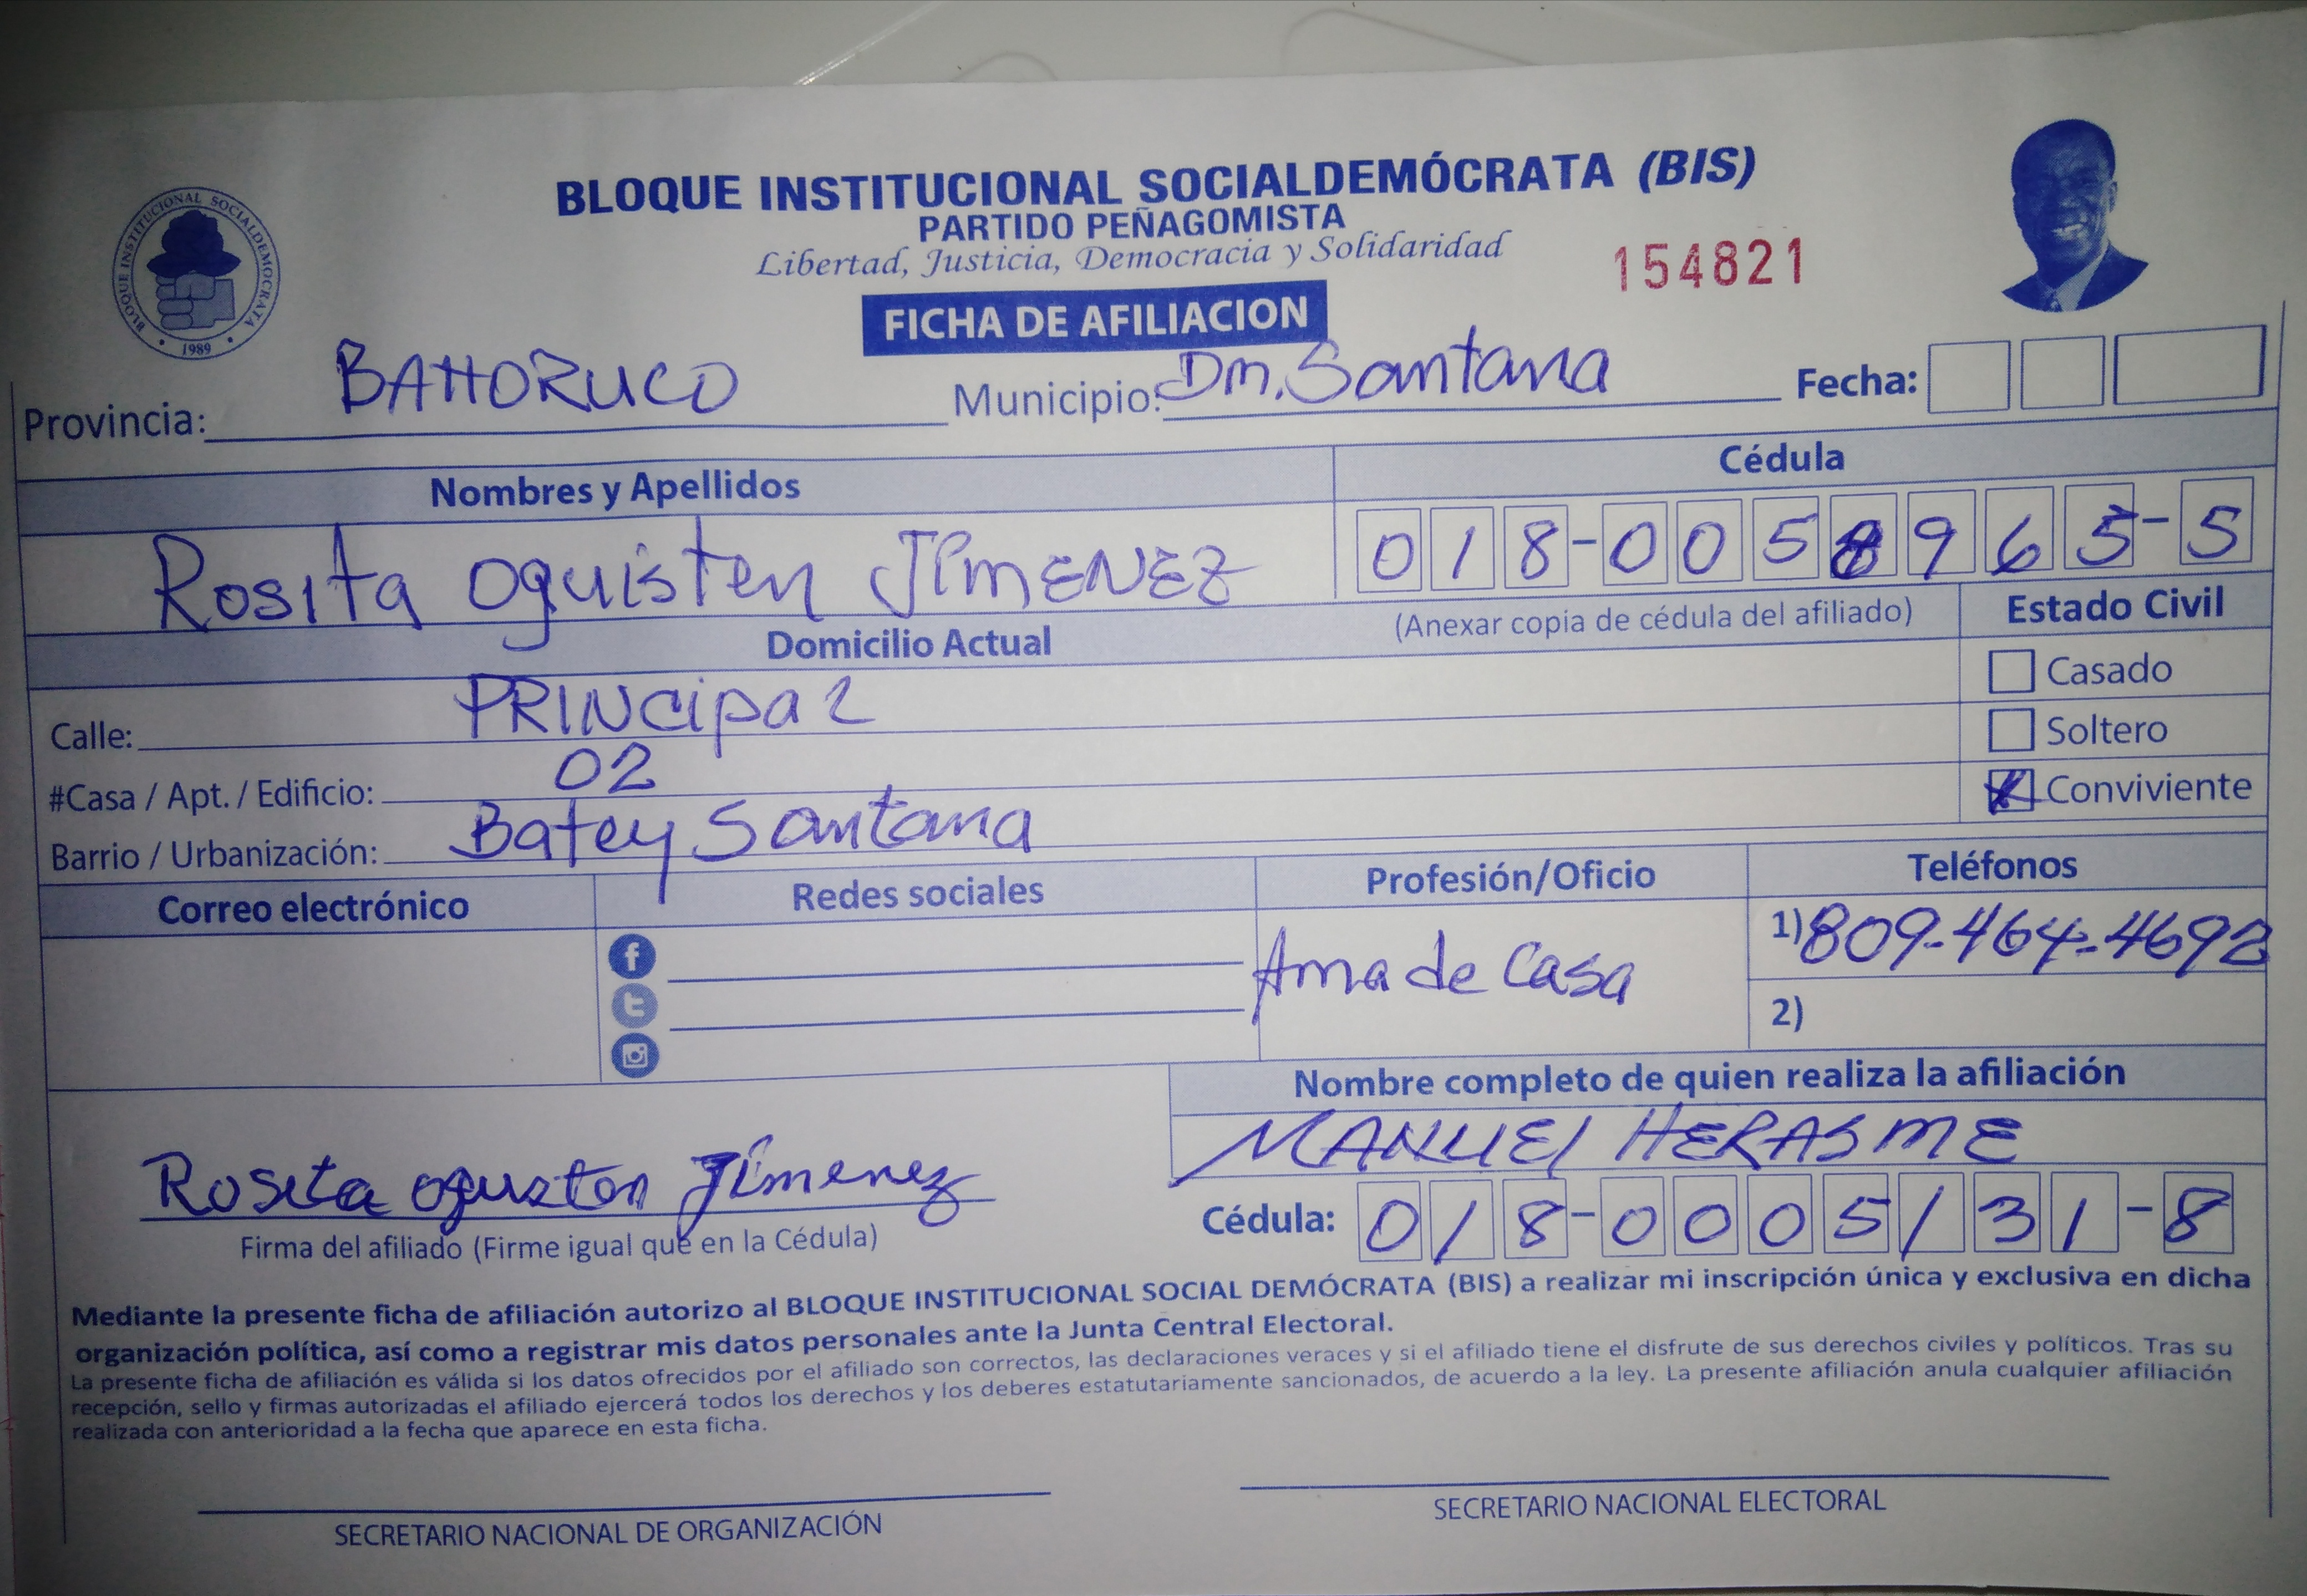 BLOQUE INSTITUCIONAL SOCIALDEMÓCRATA (BIS)
PARTIDO PEÑAGOMISTA
Libertad, Justicia, Democracia y Solidaridad
154821
BLOQUE INSTITUCIONAL SOCIALDEMOCRATA
1989
FICHA DE AFILIACION
Provincia: BAHORUCO Municipio: Dm. Santana Fecha:
Nombres y Apellidos Cédula
Rosita Oguisten JIMENEZ 018-0058965-5
Domicilio Actual (Anexar copia de cédula del afiliado) Estado Civil
Calle: PRINcipal Casado
#Casa / Apt. / Edificio: 02 Soltero
Barrio / Urbanización: Batey Santana Conviviente
Correo electrónico Redes sociales Profesión/Oficio Teléfonos
Ama de Casa 1) 809-464-4692
2)
Nombre completo de quien realiza la afiliación
MANUEl HERASME
Rosita Jimenez
Cédula: 018-0005131-8
Firma del afiliado (Firme igual que en la Cédula)
Mediante la presente ficha de afiliación autorizo al BLOQUE INSTITUCIONAL SOCIAL DEMÓCRATA (BIS) a realizar mi inscripción única y exclusiva en dicha
organización política, así como a registrar mis datos personales ante la Junta Central Electoral.
La presente ficha de afiliación es válida si los datos ofrecidos por el afiliado son correctos, las declaraciones veraces y si el afiliado tiene el disfrute de sus derechos civiles y políticos. Tras su
recepción, sello y firmas autorizadas el afiliado ejercerá todos los derechos y los deberes estatutariamente sancionados, de acuerdo a la ley. La presente afiliación anula cualquier afiliación
realizada con anterioridad a la fecha que aparece en esta ficha.
SECRETARIO NACIONAL DE ORGANIZACIÓN SECRETARIO NACIONAL ELECTORAL